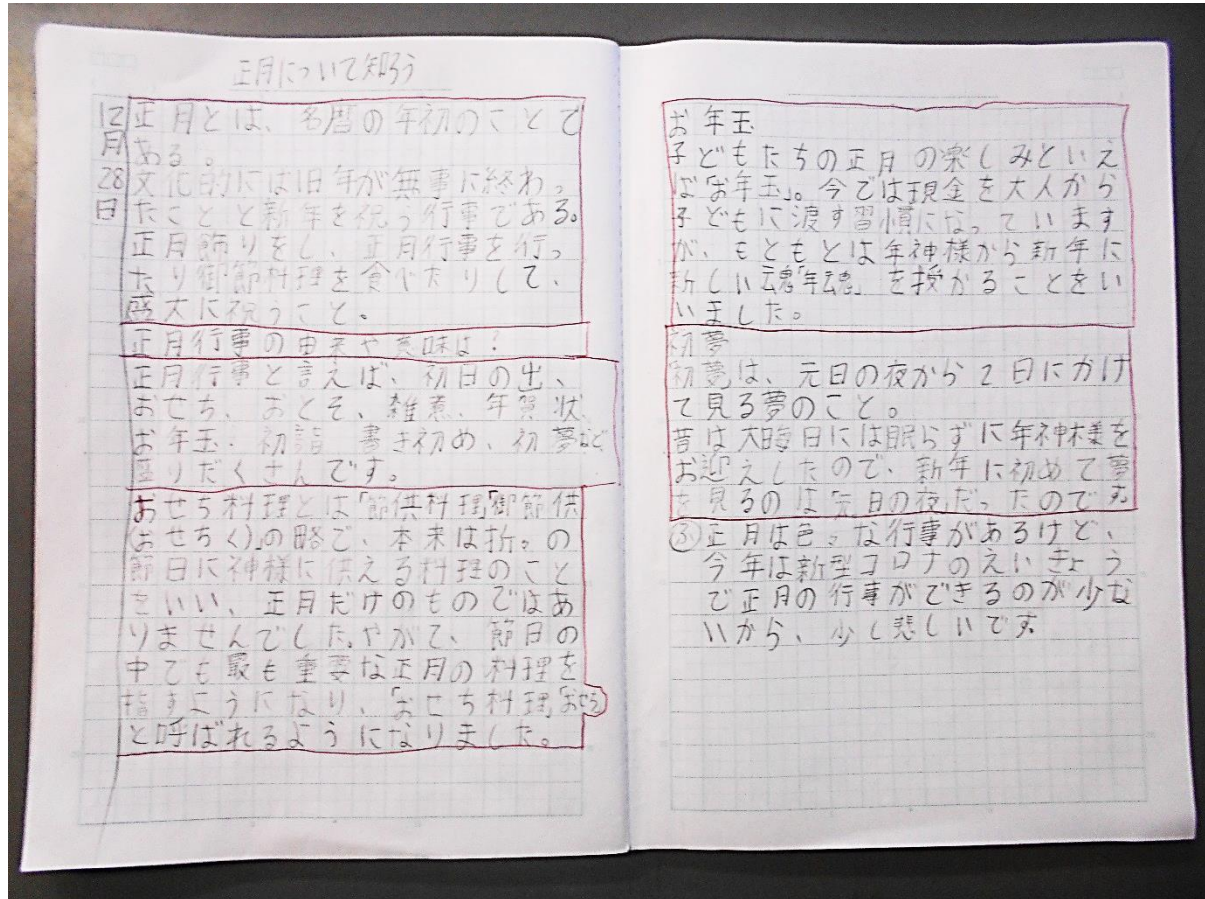 正月について知ろう
12月28日
正月とは、各暦の年初のことで
ある。
文化的には旧年が無事に終わっ
たことと新年を祝う行事である。
正月飾りをし、正月行事を行っ
たり御節料理を食べたりして、
盛大に祝うこと。
正月行事の由来や意味は?
正月行事と言えば、初日の出、
おせち、おとそ、雑煮、年賀状、
お年玉、初詣、書き初め、初夢など
盛りだくさんです。
おせち料理とは「節供料理」「御節供
(おせちく)」の略で、本来は折々の
節日に神様に供える料理のこと
をいい、正月だけのものではあ
りませんでした。やがて、節日の
中でも最も重要な正月の料理を
指すようになり、「おせち料理」「おせち」
と呼ばれるようになりました。
お年玉
子どもたちの正月の楽しみといえ
ば「お年玉」。今では現金を大人から
子どもに渡す習慣になっています
が、もともとは年神様から新年に
新しい魂「年魂」を授かることをい
いました。
初夢
「初夢」は、元日の夜から2日にかけ
て見る夢のこと。
昔は大晦日には眠らずに年神様を
お迎えしたので、新年に初めて夢
を見るのは「元日の夜」だったのです。
ふ 正月は色々な行事があるけど、
今年は新型コロナのえいきょう
で正月の行事ができるのが少な
いから、少し悲しいです。